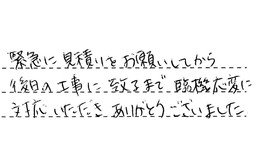 緊急に見積りをお願いしてから
後日の工事に致るまで臨機応変に
対応いただきありがとうございました